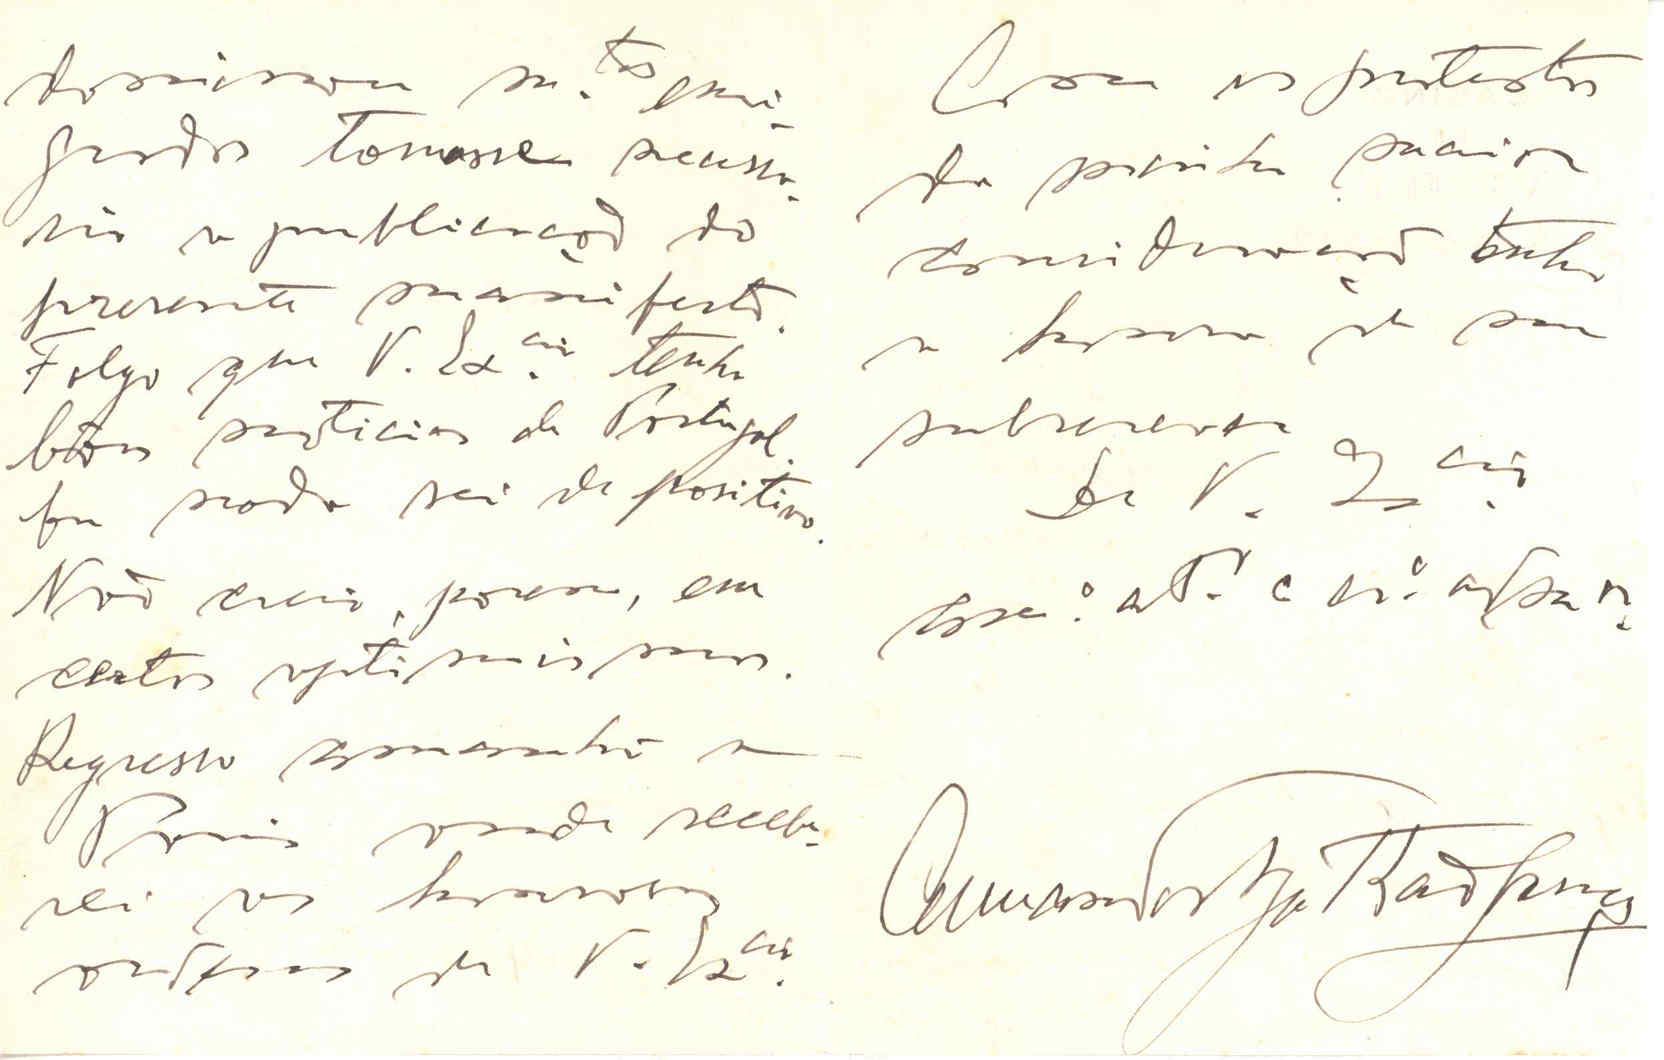 m.tos emi-
grados tornasse necessa-
rio a publicação do
presente manifesto.
Folgo que V. Ex.cia tenha
bôas noticias de Portugal.
Eu nada sei de positivo.
Não creio, porem, em
certos optimismos.
Regresso amanhã a
Paris onde recebe-
rei as honrosas
ordens de V. Ex.cia
Com os protestos
da minha maior
consideração tenho
a honra de me
subscrever
De V. Ex.cia
att.º e